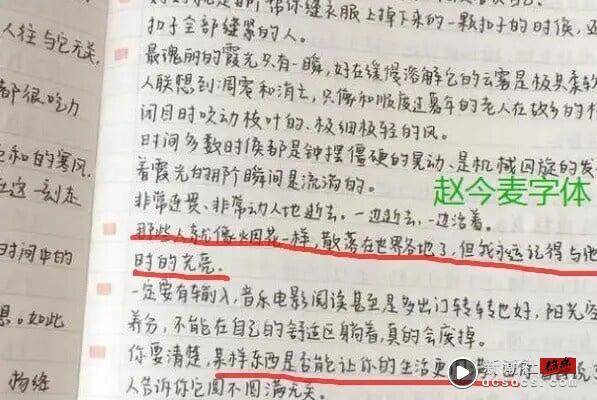 人往与它无关,
都很吃力
它和的寒风
在这一刻走
时间中的
息。如此
物络
好好就是在帮你缝衣服上掉下来的一颗扣子的时候,还
扣子全部缝紧的人。
最瑰丽的霞光只有一瞬,好在缓慢溶解它的云雾是极其柔软
人联想到凋零和消亡,只像和顺度过暮年的老人在故乡的
闭目时吹动枝叶的、极细极轻的风。
时间多数时候都是钟摆僵硬的晃动、是机械回旋的发
着霞光的那个瞬间是流淌的。
非常连贯、非常动人地逝去,一边逝去,一边活着。
赵今麦字体
那些人就像烟花一样,散落在世界各地了,但我永远记得与他
时的光亮。
一定要有输入,音乐电影阅读甚至是多出门转转也好,阳光空
养分,不能在自己的舒适区躺着,真的会废掉。
你要清楚,某样东西是否能让你的生活更
人告诉你它圆不圆满无关。
新潮社